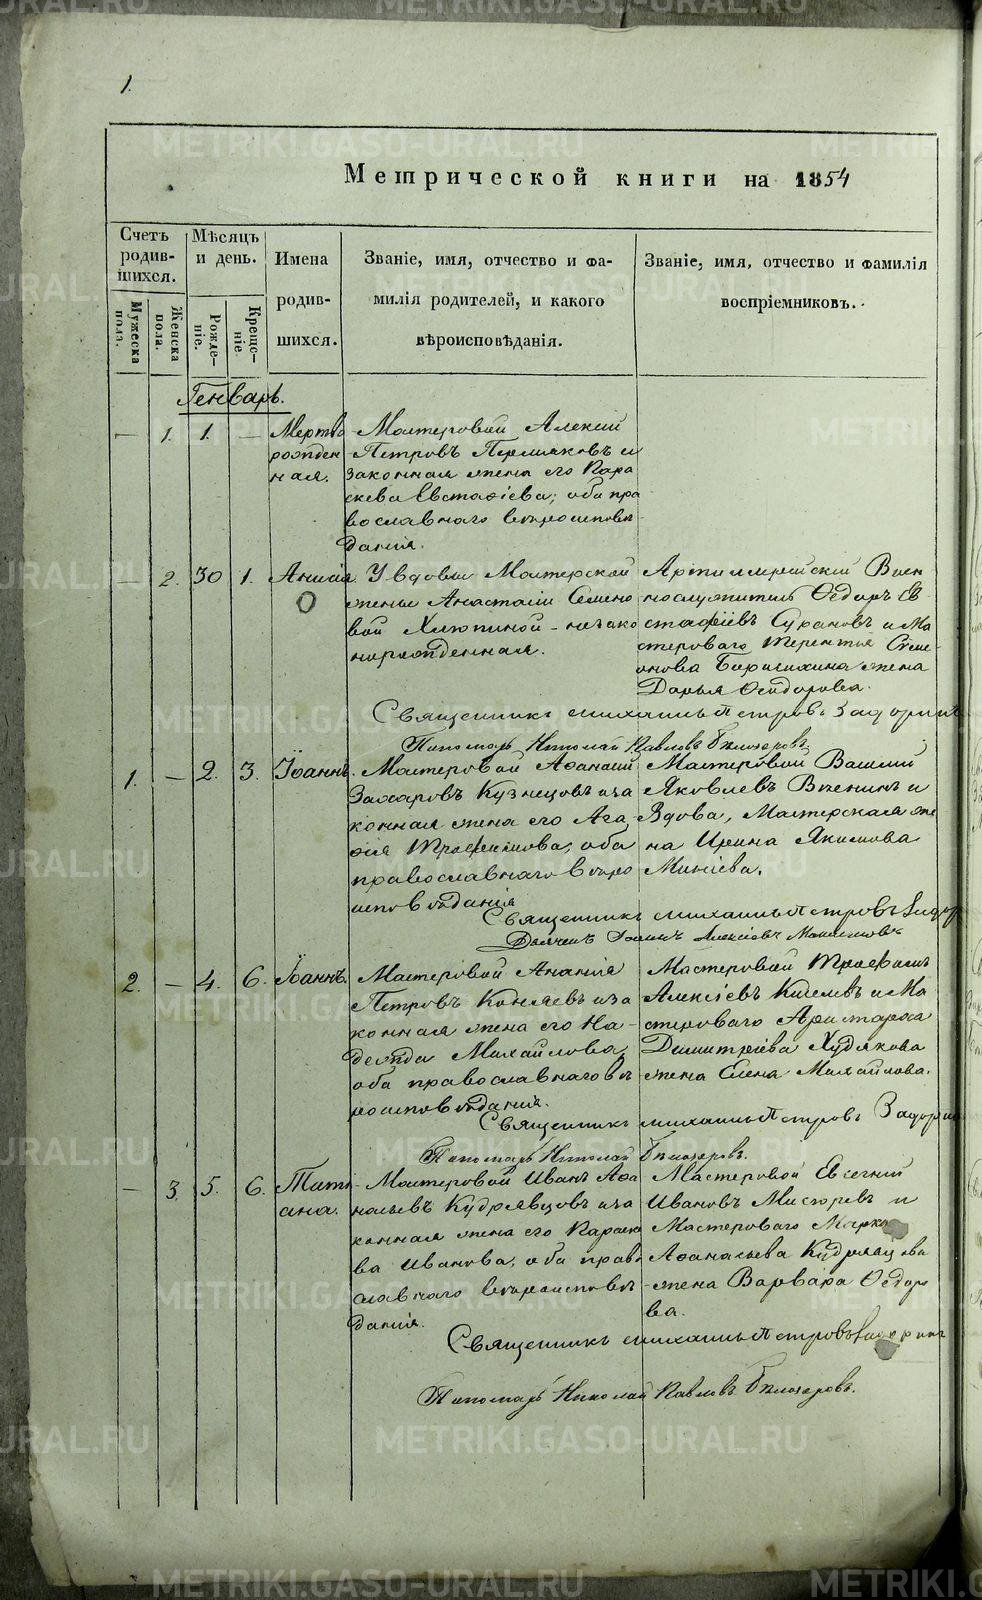 1.
Метрической книги на 1854
Счетъ родив-шихся.
Мѣсяцъ и день.
Имена родив-шихся.
Званіе, имя, отчество и фа-
милія родителей, и какого
вѣроисповѣданія.
Званіе, имя, отчество и фамилія
воспріемниковъ.
Мужеска пола.
Женска пола.
Рожде-ніе.
Креще-ніе.
Генварь.
— 1. 1. — Мертво
рожден
ная.
Мастеровой Алексій
Петровъ Пермяковъ и
законная жена его Пара
скева Евстафіева; оба пра
вославнаго вѣроисповѣ
данія.
— 2. 30 1. Анисія
У вдовы Мастерской
женки Анастасіи Семено
вой Хлюпиной - незако
норожденная.
Артиллерійскій Воен
нослужитель Ѳедоръ Ев
стафіевъ Сурановъ и Ма
стероваго Терентья Семе
онова жена
Дарья Ѳедорова.
Священникъ Михаилъ Петровъ
Пономарь Николай Павловъ Бѣлозеровъ.
1. — 2. 3. Іоаннъ.
Мастеровой Аѳанасій
Захаровъ Кузнецовъ и за
конная жена его Ага
ѳія Трофимова, оба
православнаго вѣро
исповѣданія
Мастеровой Василій
Яковлевъ и
Вдова, Мастерская же
на Ирина Якимова
Минѣева.
Священникъ Михаилъ Петровъ
Алексіевъ
2. — 4. 6. Іоаннъ.
Мастеровой Ананія
Петровъ Коняевъ и за
конная жена его На-
дежда Михайлова,
оба православнаго вѣ
роисповѣданія.
Мастеровой Трофимъ
Алексіевъ Киселевъ и Ма
стероваго Аристарха
Димитріева Худякова
жена Елена Михайлова.
Священникъ Михаилъ Петровъ
Пономарь Николай Бѣлозеровъ.
— 3. 5. 6. Тати
ана.
Мастеровой Иванъ Аѳа
насьевъ Кудрявцовъ и за
конная жена его Параске
ва Иванова, оба право
славнаго вѣроисповѣ
данія.
Мастеровой Евгеній
Ивановъ и
Мастероваго Марка
Аѳанасьева Кудрявцова
жена Варвара Ѳедоро
ва.
Священникъ Михаилъ Петровъ
Пономарь Николай Павловъ Бѣлозеровъ.
METRIKI.GASO-URAL.RU